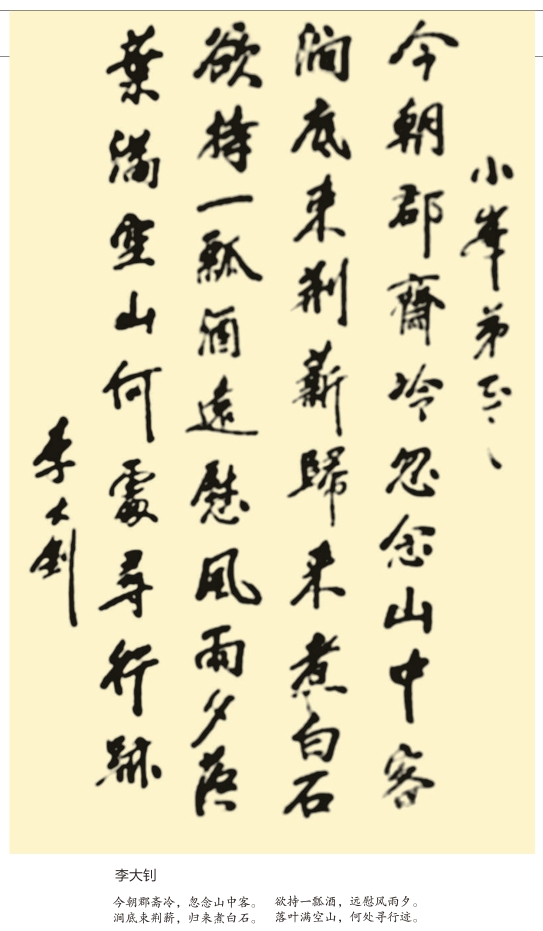 小峯弟
今朝郡齋冷忽念山中客
澗底束荆薪歸来煮白石
欲持一瓢酒遠慰風雨夕落
葉滿空山何處尋行跡
李大釗
李大钊
今朝郡斋冷，忽念山中客。
涧底束荆薪，归来煮白石。
欲持一瓢酒，远慰风雨夕。
落叶满空山，何处寻行迹。